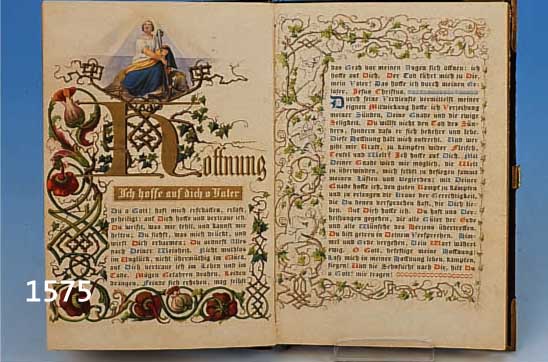 Hoffnung
Ich hoffe auf dich o Vater
Du o Gott hast mich erschaffen, erlöst,
geheiligt: auf Dich hoffe und vertraue ich.
Du weißt, was mir fehlt, und kannst mir
helfen. Du siehst, was mich drückt, und
willst Dich erbarmen: Du alles
nach Deiner Weisheit. Nicht muthlos
im Unglück, nicht übermüthig im Glück,
auf Dich vertraue ich im Leben und im
Tode. Mögen Gefahren drohen, Leiden
drängen, Feinde sich erheben, mag selbst
1575
das Grab vor meinen Augen sich öffnen: ich
hoffe auf Dich. Der Tod führt mich zu Dir,
mein Vater! Das hoffe ich durch meinen Er=
löser, Jesus Christus.
Durch seine Verdienste vermittelst meiner
eignen Mitwirkung hoffe ich Verzeihung
meiner Sünden, Deine Gnade und die ewige
Seligkeit. Du willst nicht den Tod des Sün=
ders, sondern daß er sich bekehre und lebe.
Diese Hoffnung hält mich aufrecht. Und wer
gibt mir Kraft, zu kämpfen wider Fleisch,
Teufel und Welt? Ich hoffe auf Dich. Mit
Deiner Gnade wird mir möglich, die Welt
zu überwinden, mich selbst zu besiegen sammt
meinen Lüsten und Begierden; mit Deiner
Gnade hoffe ich, den guten Kampf zu kämpfen
und zu erlangen die Krone der Gerechtigkeit,
die Du denen versprochen hast, die Dich lie=
ben. Auf Dich hoffe ich. Du hast uns Ver=
heißungen gegeben, die alle Güter der Erde
und alle Wünsche des Herzens übertreffen.
Du bist getreu in Deinem Versprechen. Him=
mel und Erde vergehen, Dein Wort währet
ewig. O Gott, befestige meine Hoffnung;
laß mich in meiner Hoffnung leben, kämpfen,
siegen! Und die Sehnsucht nach Dir, hilf Du
sie mir tragen!